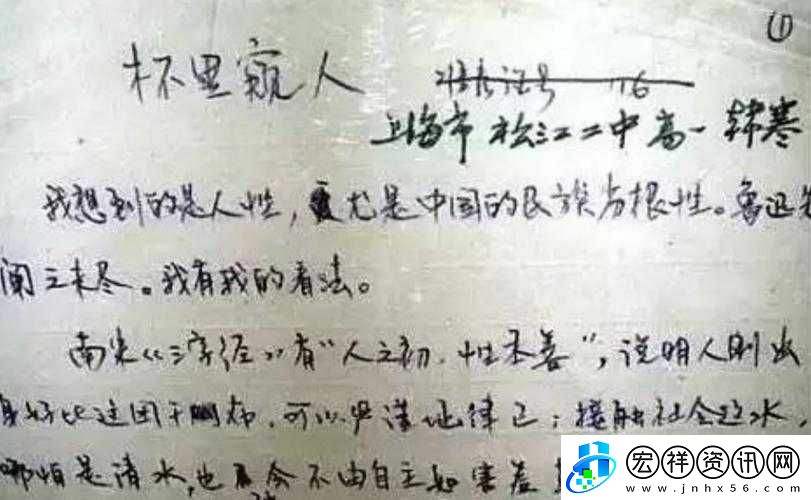 ①
杯里窥人
准考证号 116
上海市 松江二中 高一 韩寒
我想到的是人性,尤是中国的民族劣根性。鲁迅先
阐之未尽。我有我的看法。
南宋《三字经》有“人之初,性本善”,说明人刚出
身好比这团干布,可以严谨地律己;接触社会这水,
哪怕是清水,也会不由自主如害羞
宏祥资讯网
www.jnhx56.com